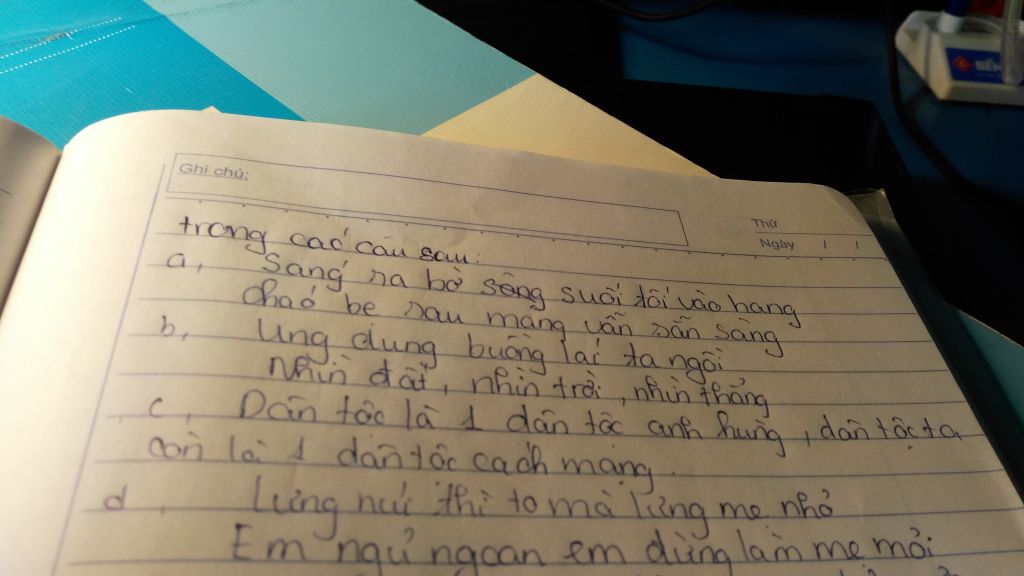 Ghi chú:
Thứ
Ngày / /
trong các câu sau:
a, Sáng ra bờ sông suối tối vào hang
cháo bẹ rau măng vẫn sẵn sàng
b, Ung dung buồng lái ta ngồi
Nhìn đất, nhìn trời, nhìn thẳng
c, Dân tộc là 1 dân tộc anh hùng, dân tộc ta
còn là 1 dân tộc cách mạng.
d, Lưng núi thì to mà lưng mẹ nhỏ
Em ngủ ngoan em đừng làm mẹ mỏi